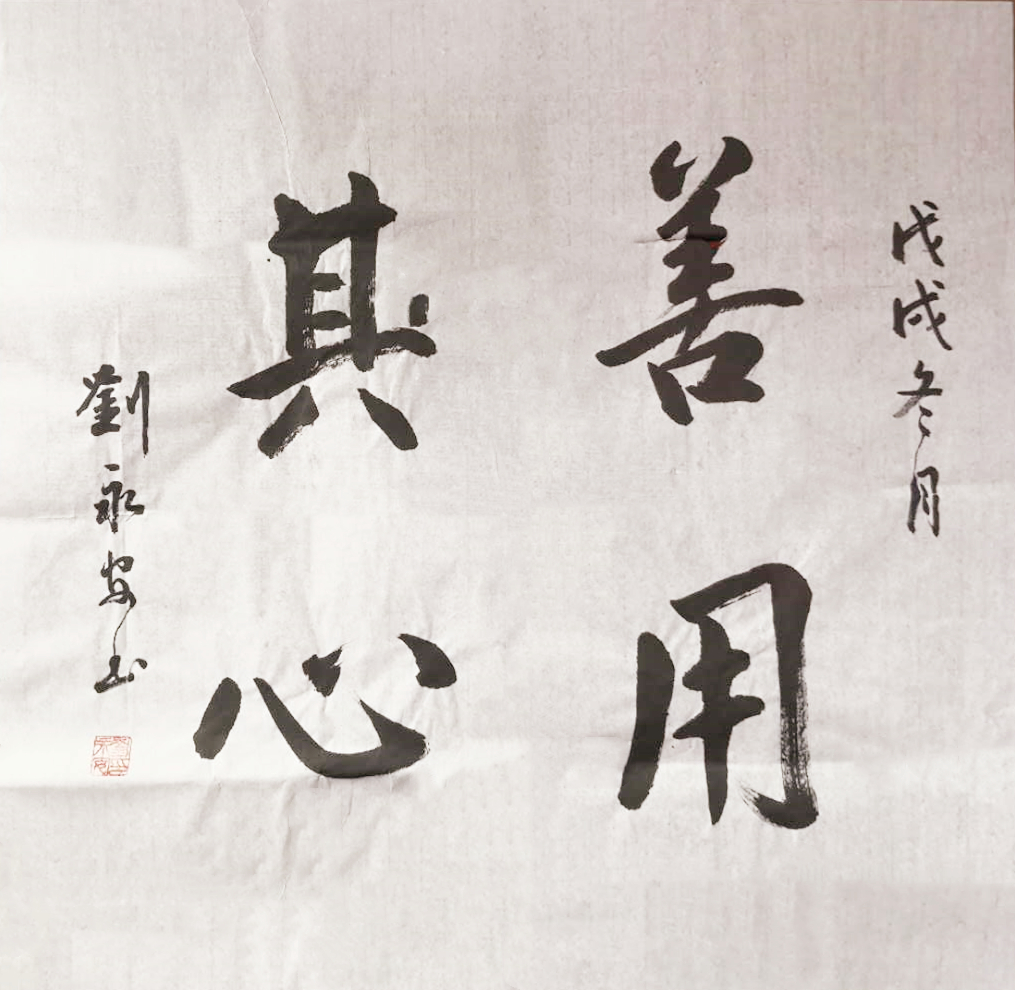 戊戌冬月
善用
其心
劉永安书